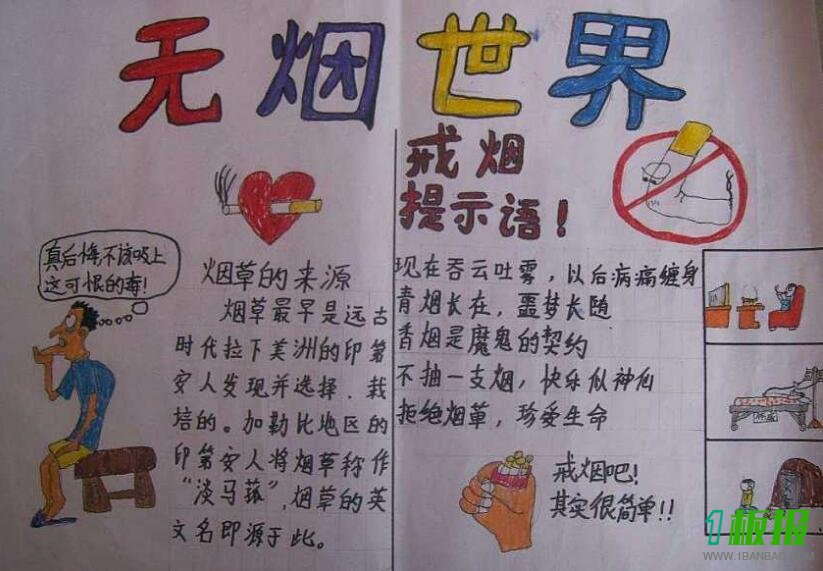 无烟世界
真后悔不该吸上
这可恨的毒!
烟草的来源
烟草最早是远古
时代拉下美洲的印第
安人发现并选择.栽
培的。加勒比地区的
印第安人将烟草称作
“淡马菰”,烟草的英
文名即源于此。
戒烟
提示语!
现在吞云吐雾,以后病痛缠身
青烟长在,噩梦长随
香烟是魔鬼的契约
不抽一支烟,快乐似神仙
拒绝烟草,珍爱生命
戒烟吧!
其实很简单!!
1板报
WWW.1BANBAO.COM